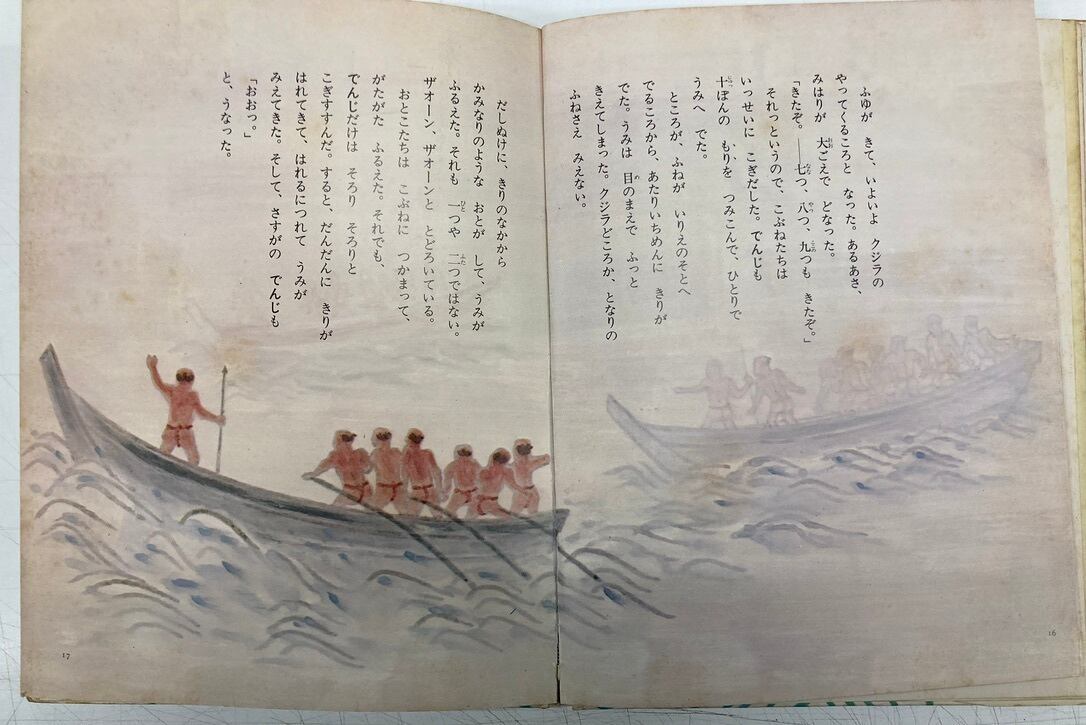 ふゆが きて、いよいよ クジラの
やってくるころと なった。あるあさ、
みはりが 大ごえで どなった。
「きたぞ。――七つ、八つ、九つも きたぞ。」
それっというので、こぶねたちは
いっせいに こぎだした。でんじも
十ぽんの もりを つみこんで、ひとりで
うみへ でた。
ところが、ふねが いりえのそとへ
でるころから、あたりいちめんに きりが
でた。うみは 目のまえで ふっと
きえてしまった。クジラどころか、となりの
ふねさえ みえない。
16
だしぬけに、きりのなかから
かみなりのような おとが して、うみが
ふるえた。それも 一つや 二つではない。
ザオーン、ザオーンと とどろいている。
おとこたちは こぶねに つかまって、
がたがた ふるえた。それでも、
でんじだけは そろり そろりと
こぎすすんだ。すると、だんだんに きりが
はれてきて、はれるにつれて うみが
みえてきた。そして、さすがの でんじも
「おおっ。」
と、うなった。
17